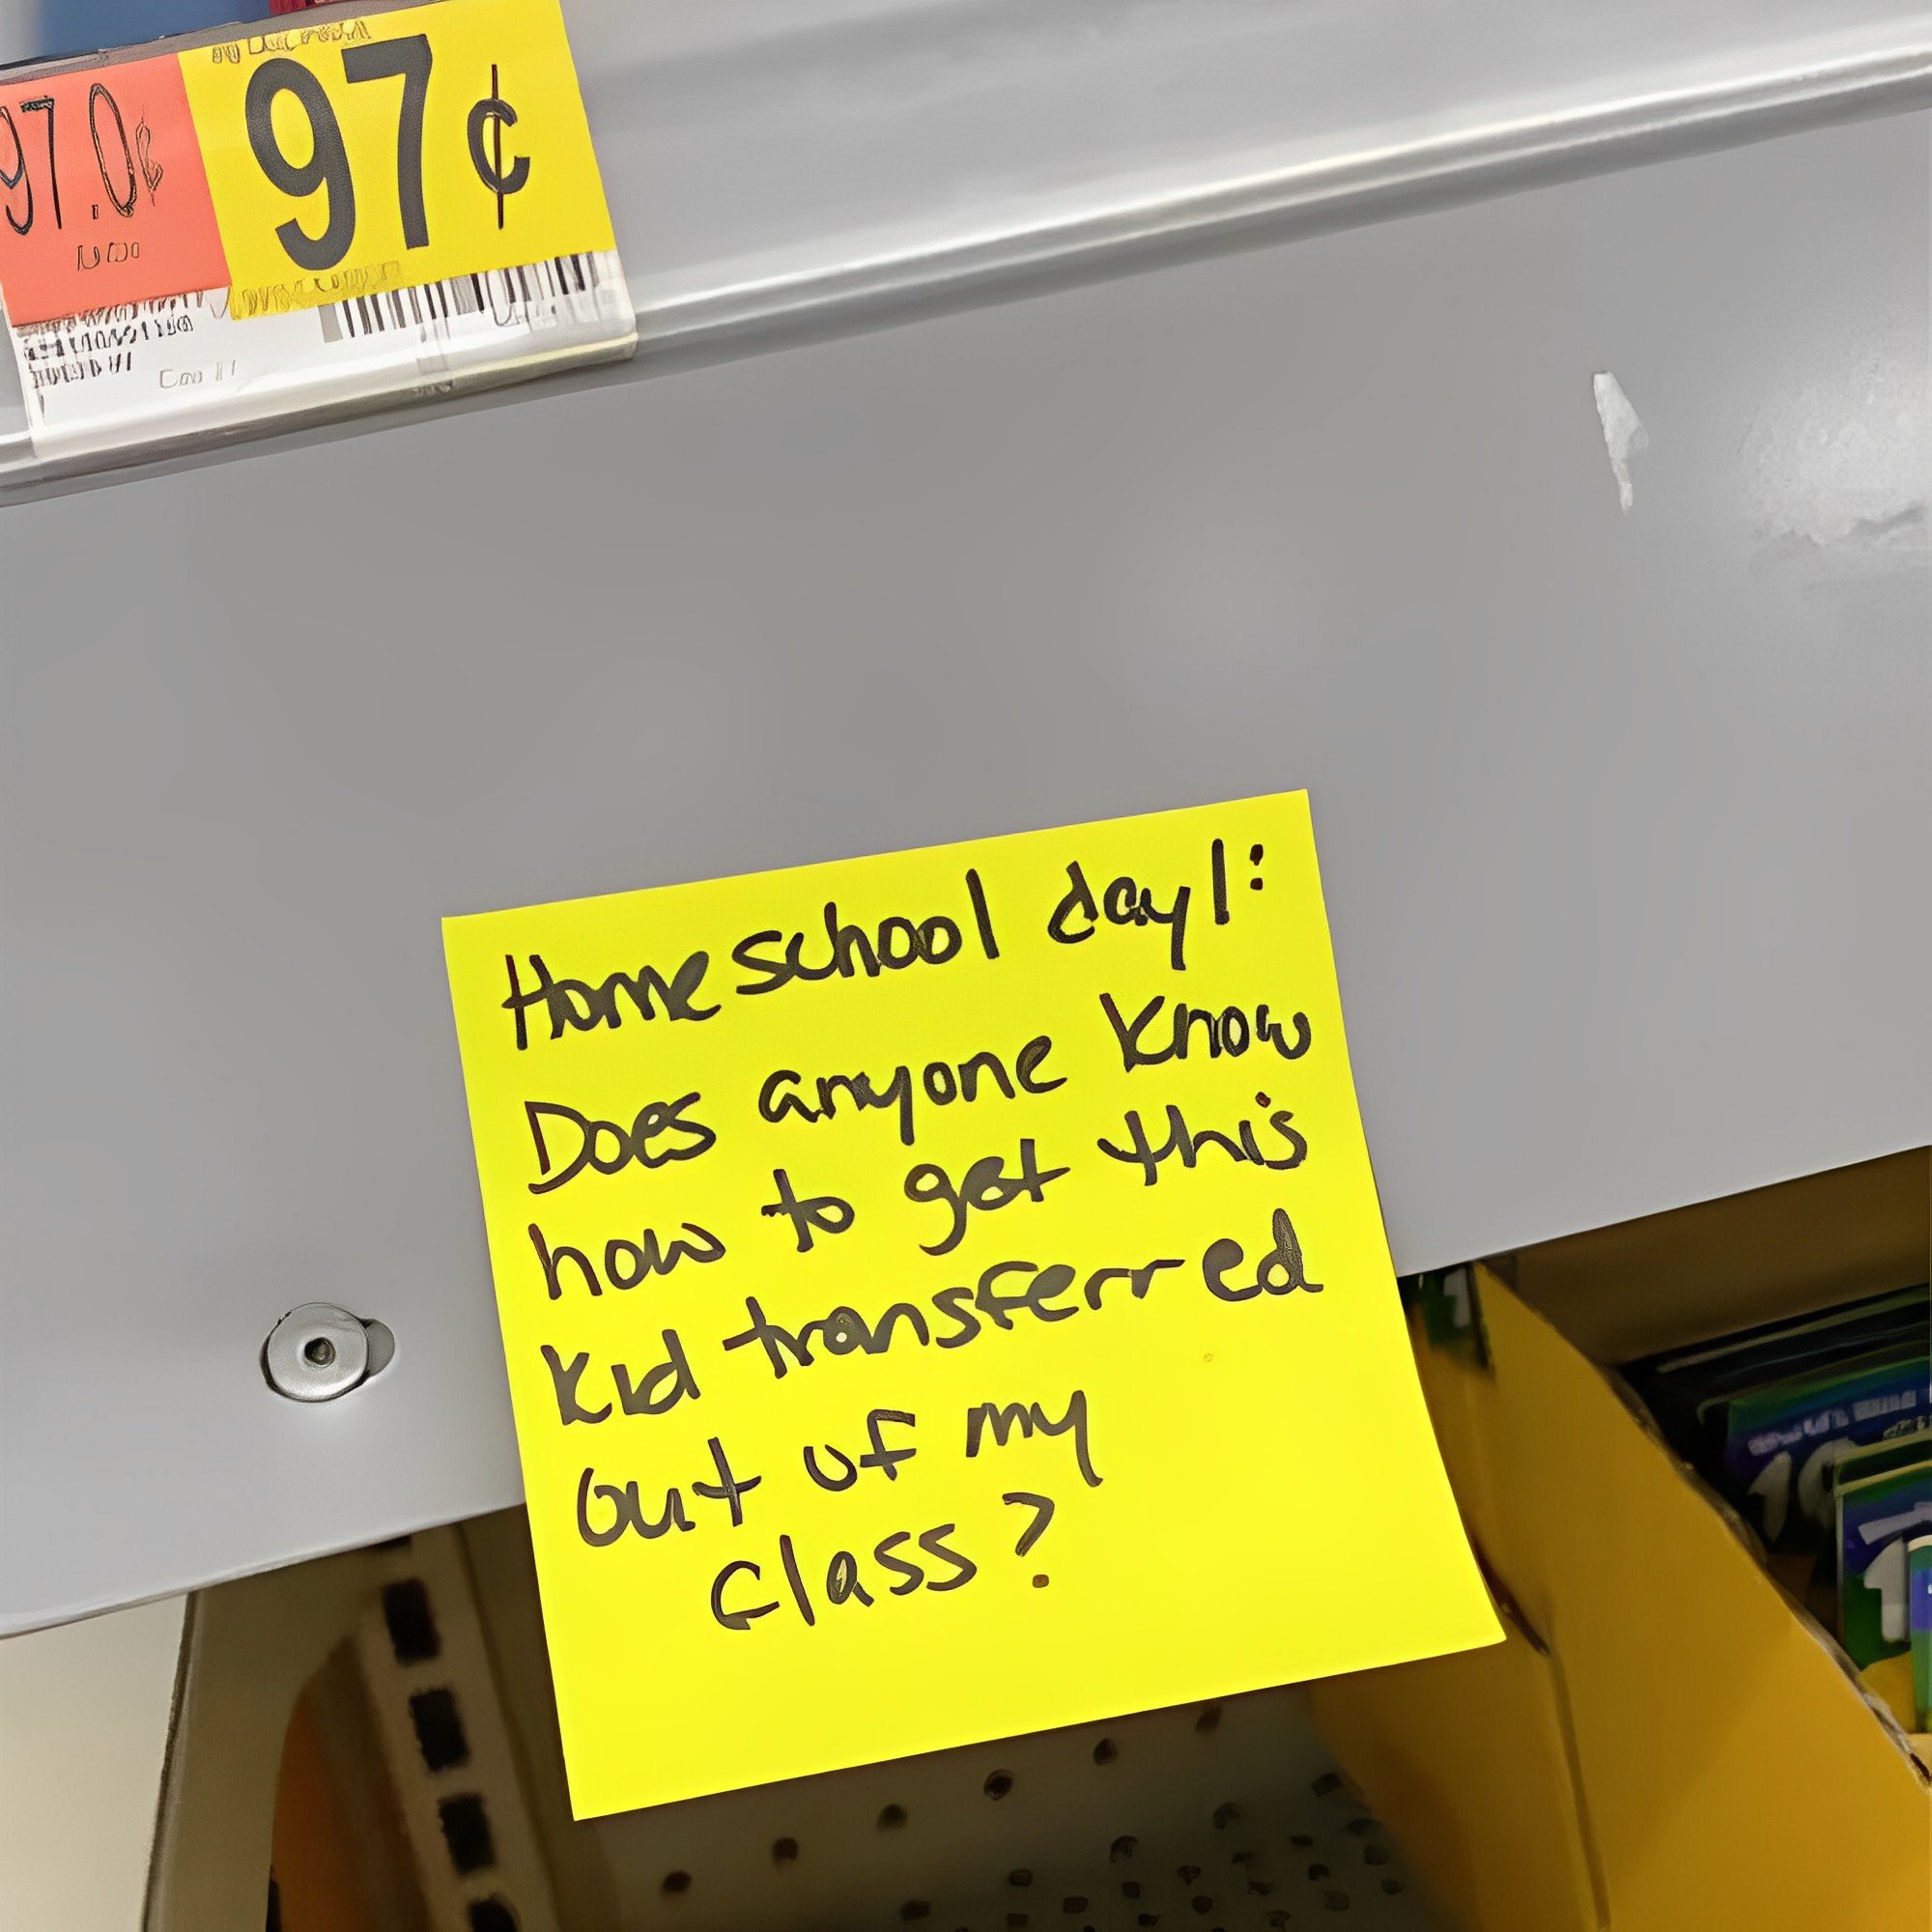 97.0¢
97¢
Homeschool day 1:
Does anyone know
how to get this
kid transferred
out of my
class?